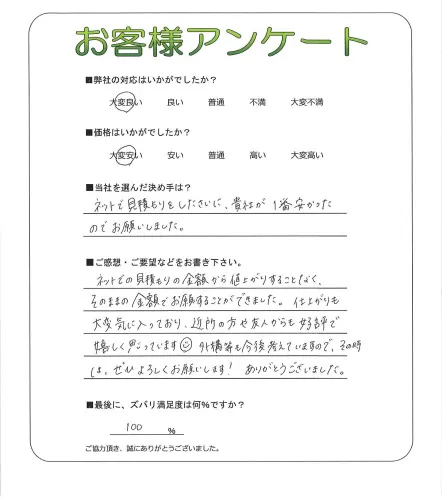 お客様アンケート
■弊社の対応はいかがでしたか?
大変良い 良い 普通 不満 大変不満
■価格はいかがでしたか?
大変安い 安い 普通 高い 大変高い
■当社を選んだ決め手は?
ネットで見積もりをしたさいに、貴社が1番安かった
のでお願いしました。
■ご感想・ご要望などをお書き下さい。
ネットでの見積もりの金額から値上がりすることなく、
そのままの金額でお願いすることができました。仕上がりも
大変気に入っており、近所の方や友人からも好評で
嬉しく思っています☺ 外構等も今後考えていますので、その時
は、ぜひよろしくお願いします! ありがとうございました。
■最後に、ズバリ満足度は何%ですか?
100 %
ご協力頂き、誠にありがとうございました。